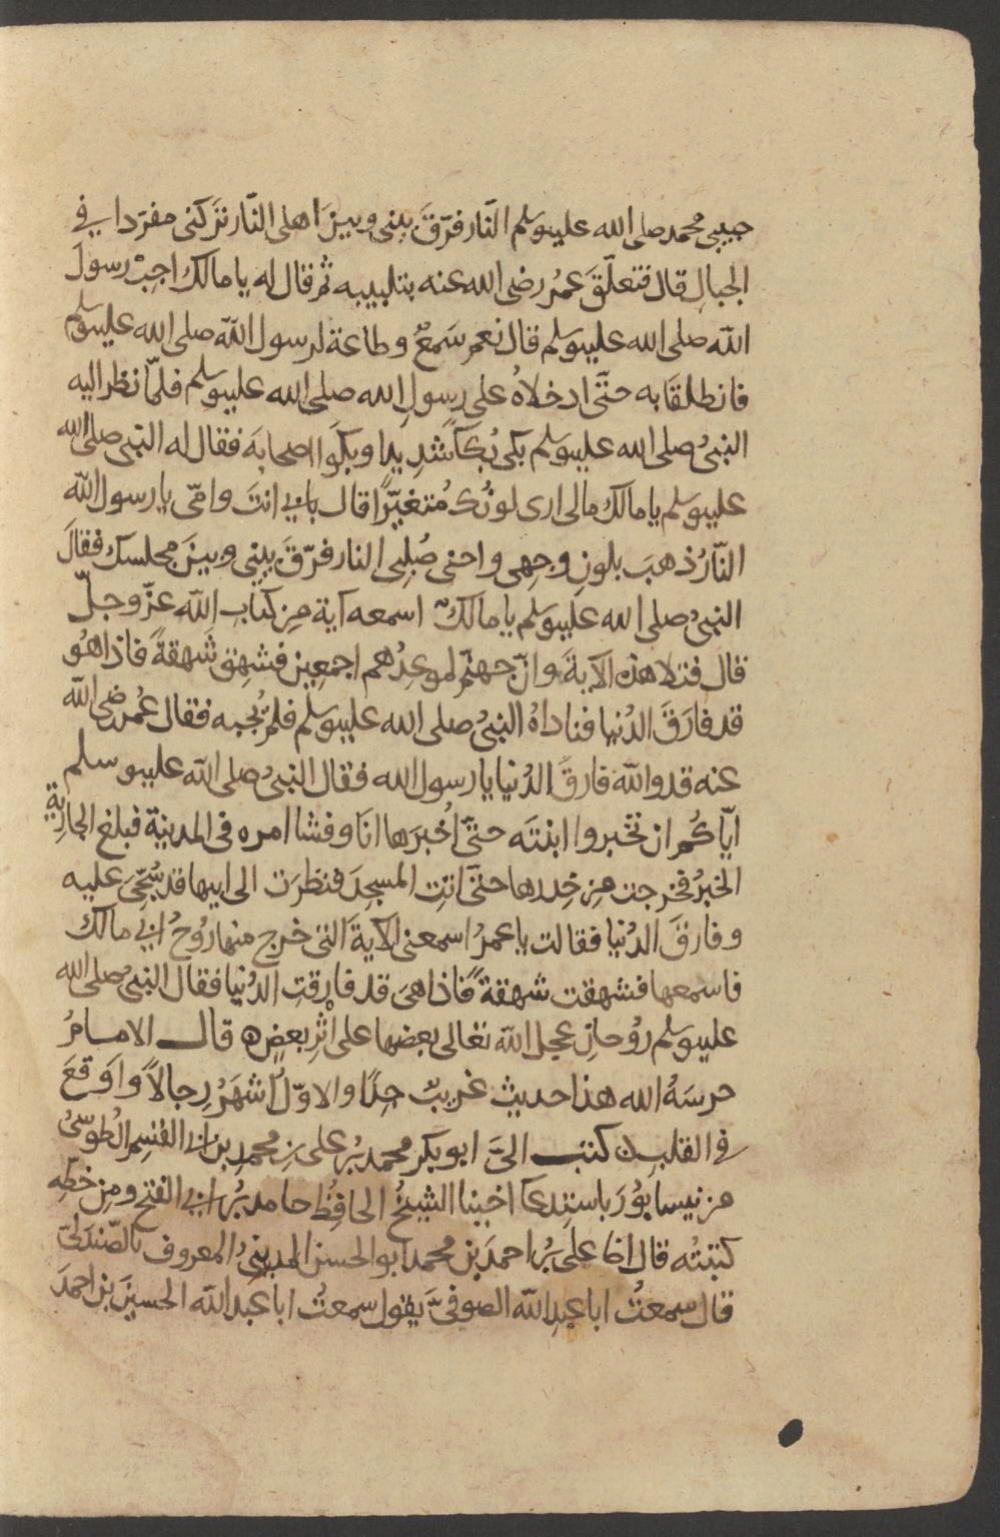 حبيبي محمد صلى الله عليه وسلم النّار فرّقَ بيني وبينَ اهلى النّار تَركنى مفرّدا في
الجبالِ قال فتعلّقَ عمرُ رضى الله عنه بتلبيبه ثم قال له يا مالك اجبْ رسولَ
الله صلى الله عليه وسلم قال نعم سَمعٌ وطاعة لرسول الله صلى الله عليه وسلم
فانطلقَا به حتّى ادخلاهُ على رسولِ الله صلى الله عليه وسلم فلمّا نظر اليه
النبىُ صلى الله عليه وسلم بكى بُكآءً شديدا وبكَوا اصحابَه فقال له النبى صلى الله
عليه وسلم يا مالك مالى ارى لونُك مُتغيّرًا قال بابي انتَ وامّى يا رسول الله
النّارُ ذهبَ بلونِ وجهِى واحنى صُلبِى النار فرّقَ بينِى وبينَ مجلسك فقالَ
النبىُ صلى الله عليه وسلم يا مالك اسمعه آية مِن كتابِ الله عزّ وجلّ
قال فتلا هذه الآيةَ وانّ جهنّم لموعِدُهم اجمعين فشهِق شَهقةً فاذا هُو
قد فارَقَ الدُنيا فناداهُ النبىُ صلى الله عليه وسلم فلم يُجبه فقال عُمر رضى الله
عنه قد والله فارقَ الدُنيا يا رسول الله فقال النبىُ صلى الله عليه وسلم
ايّاكُم ان تخبروا ابنتَه حتّى اُخبرَها انَا وفشا امره فى المدينة فبلغ الجاريةَ
الخبرُ فخرجت مِن خِدرها حتّى اتتِ المسجِدَ فنظرَت الى ابيها قد سُجِّىَ عليه
وفارقَ الدُنيا فقالت يا عمرُ اسمعنى الآيةَ التى خرج منها رُوحُ ابي مالك
فاسمعها فشهقت شهقةً فاذا هىَ قد فارقتِ الدُنيا فقال النبىُ صلى الله
عليه وسلم رُوحانِ عجل الله تعالى بعضها على اثرِ بعضٍ ه قال الامامُ
حرسَهُ الله هذا حديث غريبٌ جدًا والاوّل اشهَرُ رِجالاً واوَقعَ
في القلب ه كتب الىَّ ابو بكر محمد بنُ على بنِ محمدِ بن ابي القسِم الطُوسىُ
من نيسابوُرَ باستدعآ اخبنا الشيخُ الحافِظُ حامد بنُ ابي الفتح ومِن خطّه
كتبتُه قال انا على بنُ احمدَ بنِ محمد ابو الحسن المدينىُ المعروف بالصّندَلىّ
قال سمعتُ ابا عبدِ الله الصوفىَّ يَقول سمعتُ ابا عبد الله الحسينَ بن احمدَ